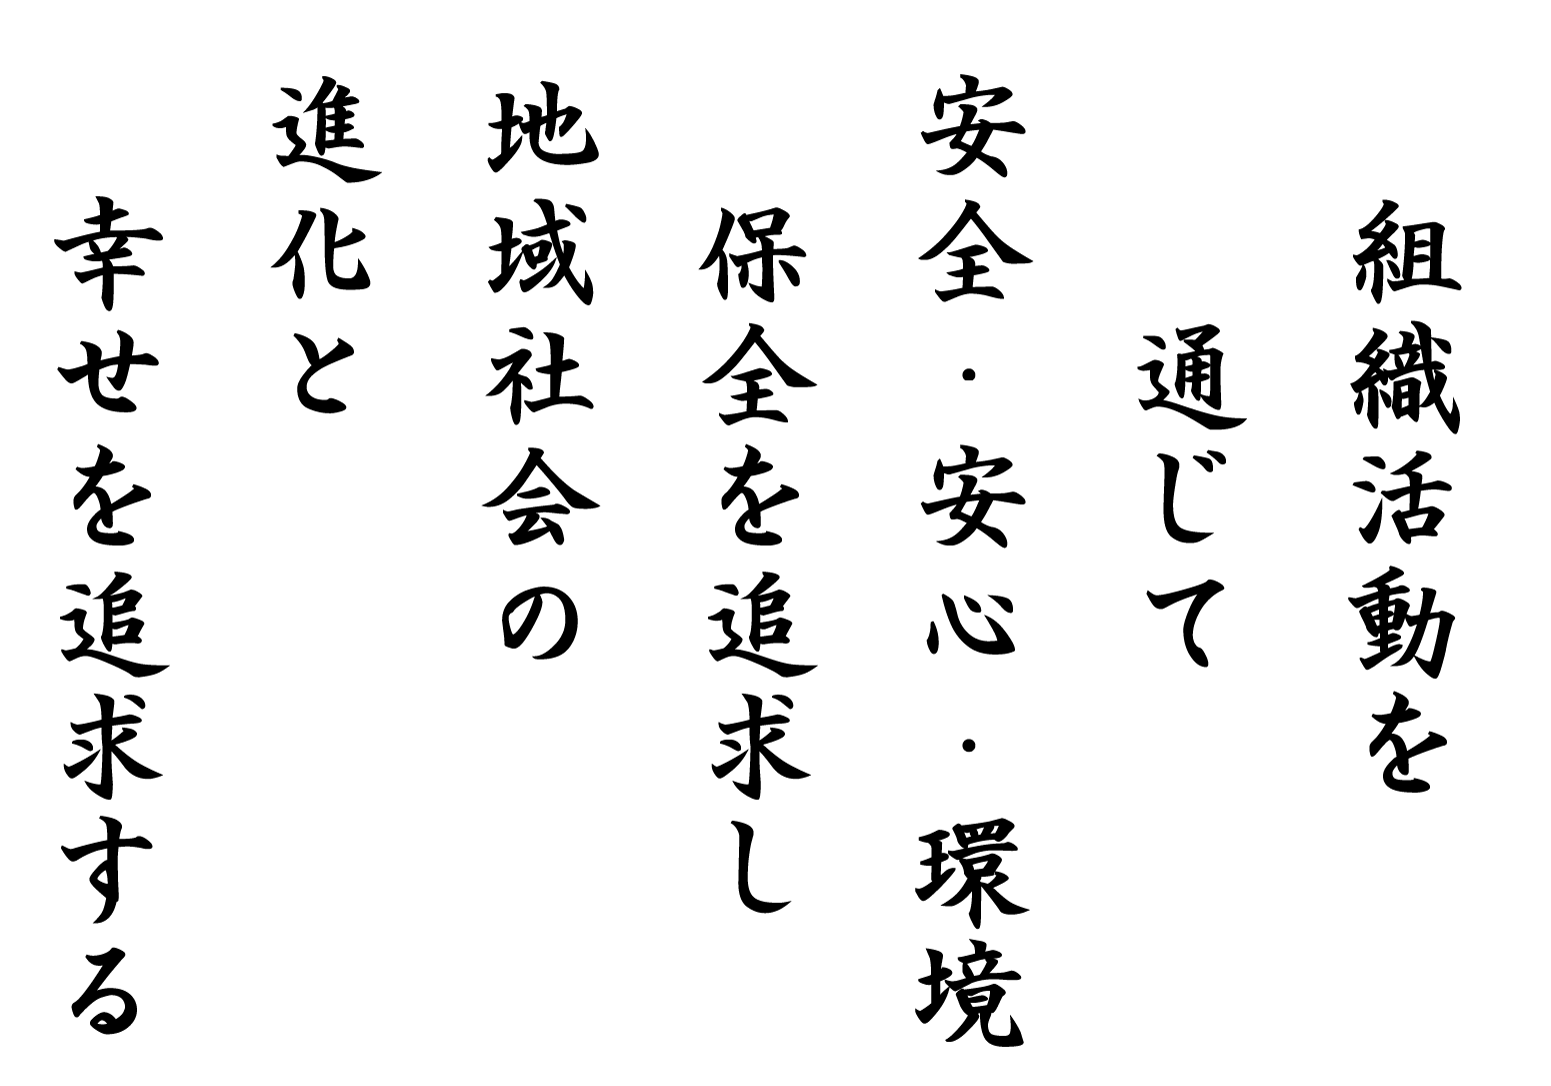 組織活動を
通じて
安全・安心・環境
保全を追求し
地域社会の
進化と
幸せを追求する